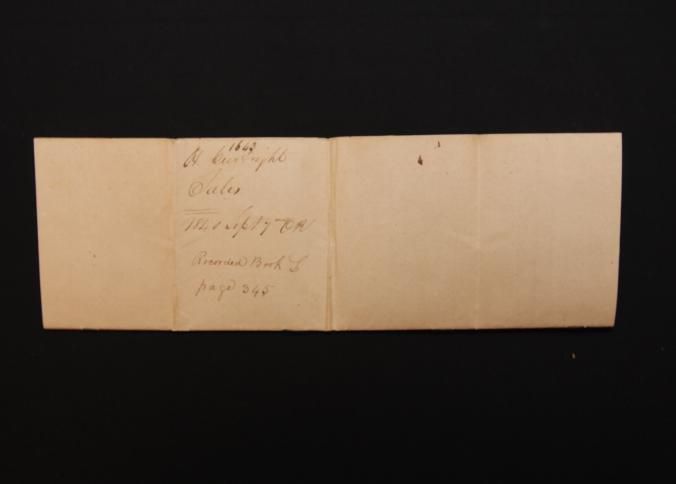 1643
H. Curtright
Sales
1840 Sept 7th
Recorded Book L
page 345